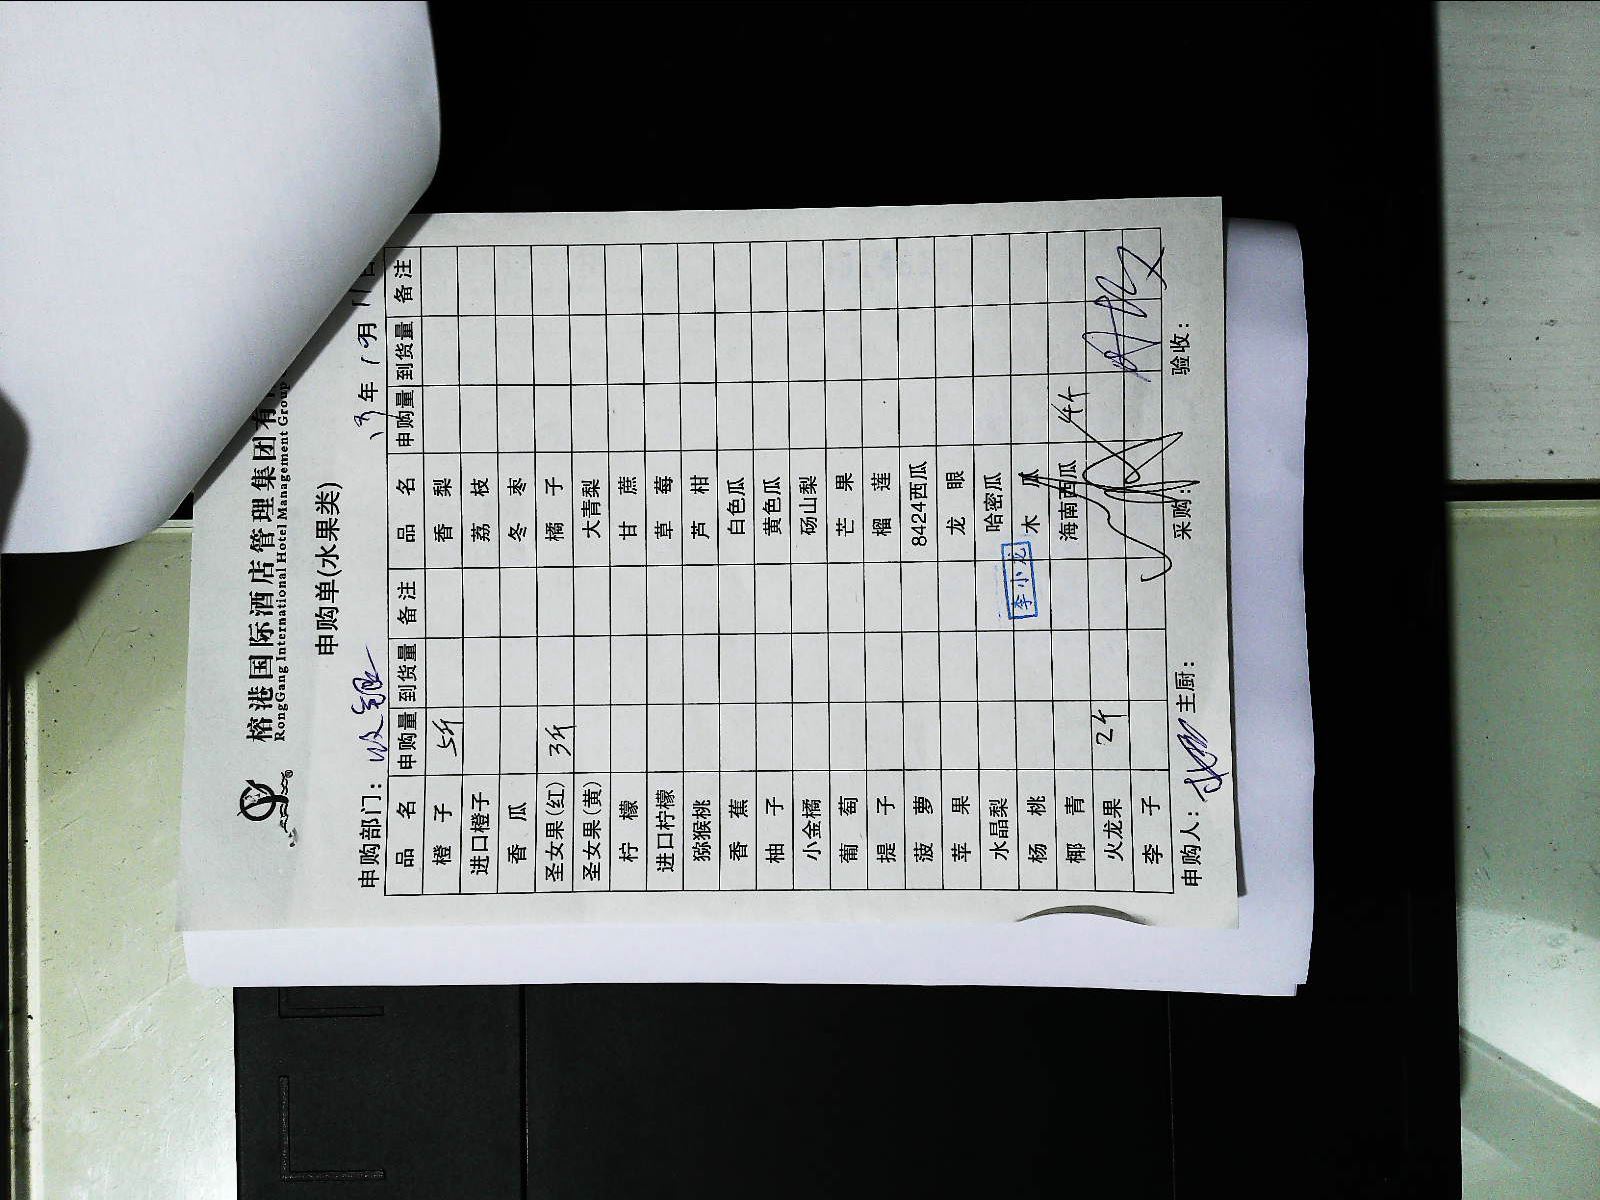 榕港国际酒店管理集团有
RongGang International Hotel Management Group
申购单(水果类)
申购部门: 收银 年 1 月 11 日
品 名 申购量 到货量 备 注 品 名 申购量 到货量 备 注
橙 子 5斤 香 梨
进口橙子 荔 枝
香 瓜 冬 枣
圣女果(红) 3斤 橘 子
圣女果(黄) 大青梨
柠 檬 甘 蔗
进口柠檬 草 莓
猕猴桃 芦 柑
香 蕉 白色瓜
柚 子 黄色瓜
小金橘 砀山梨
葡 萄 芒 果
提 子 榴 莲
菠 萝 8424西瓜
苹 果 龙 眼
水晶梨 哈密瓜
杨 桃 李小龙 木 瓜
椰 青 海南西瓜 4斤
火龙果 2斤
李 子
申购人: 主厨: 采购: 验收: